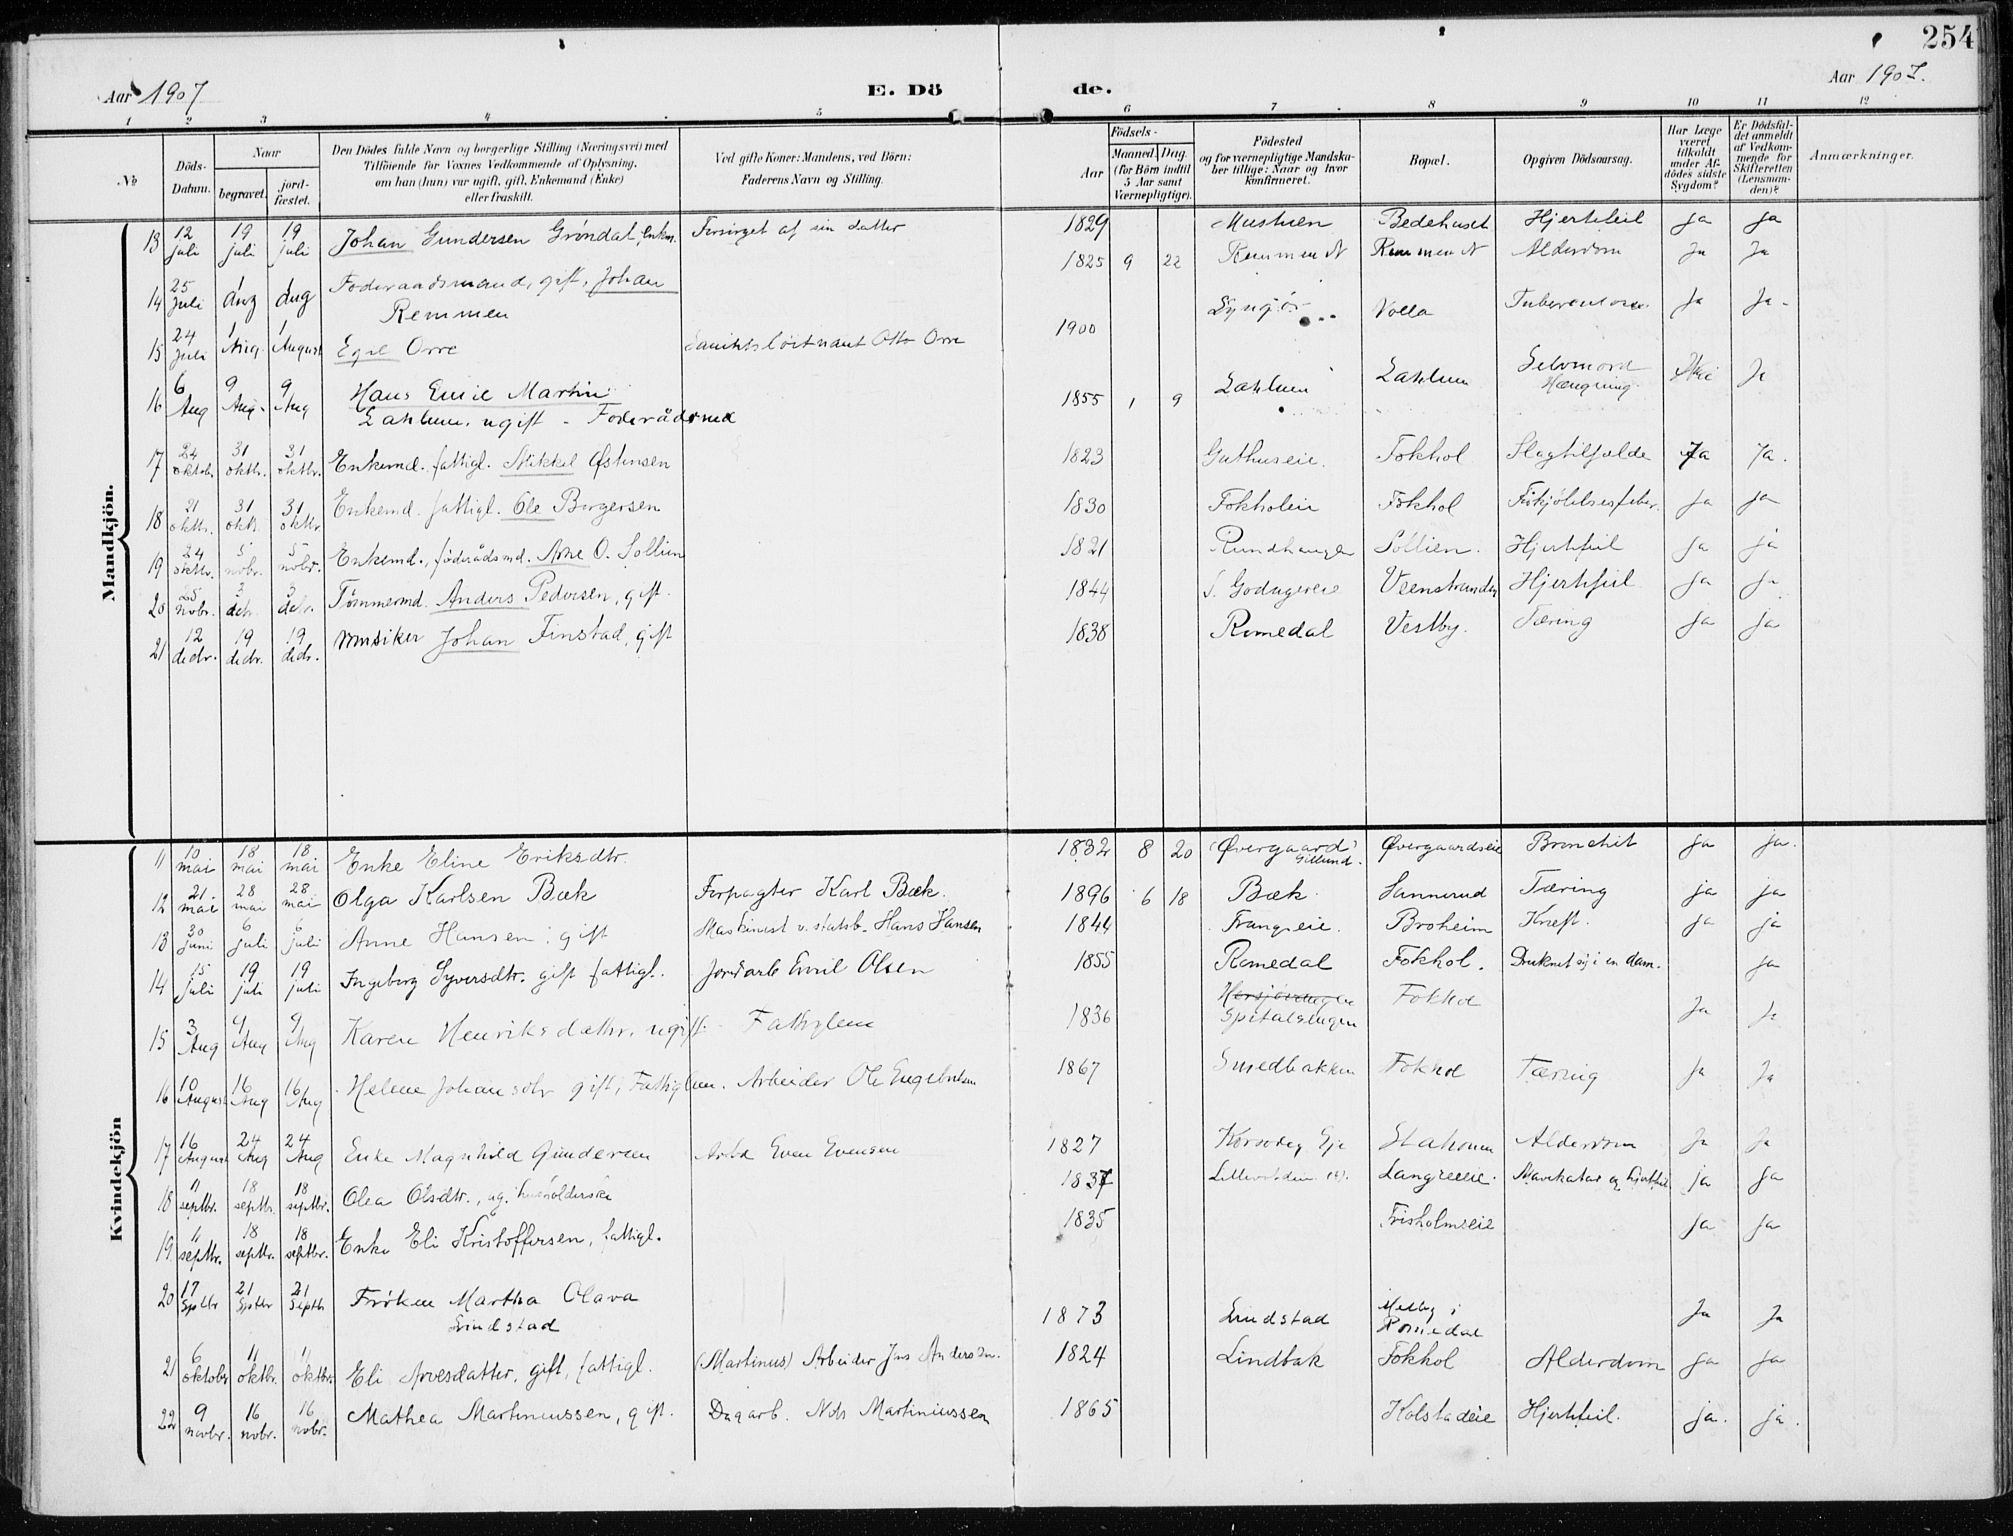 254
Aar 1907
E. Dö
de.
Aar 1907.
1 2 3 4 5 6 7 8 9 10 11 12
No
Döds-Datum.
Naar
begravet.
jord-fæstet.
Den Dödes fulde Navn og borgerlige Stilling (Næringsvei) med
Tilföiende for Voxnes Vedkommende af Oplysning,
om han (hun) var ugift, gift, Enkemand (Enke)
eller fraskilt.
Ved gifte Koner: Mandens, ved Börn:
Faderens Navn og Stilling.
Aar
Födsels-
Maaned. Dag.
(for Börn indtil
5 Aar samt
Værnepligtige).
Födested
og for værnepligtige Mandska-
ber tillige: Naar og hvor
konfirmeret.
Bopæl.
Opgiven Dödsaarsag.
Har Læge
været
tilkaldt
under Af-
dödes sidste
Sygdom?
Er Dödsfal-
det anmeldt
af Vedkom-
mende for
Skifteretten
(Lensman-
den)?
Anmærkninger.
Mandkjön.
13 12 juli 19 juli 19 juli Johan Gundersen Gröndal, enkm. Forsörget af sin datter 1829 Mustuen Bedehuset Hjertefeil ja ja
14 25 Juli 1 Aug 1 Aug Foderaadsmand, gift, Johan 1825 9 22 Remmen N Remmen N Alderdom Ja Ja
Remmen
15 24 Juli 1 Aug. 1 August Egil Orre Sanitetsløitnant Otto Orre 1900 Volla Tuberculose Ja Ja
16 6 Aug 9 Aug. 9 Aug Hans Emil Martin 1855 1 9 Selvmord Ja
ugift - Foderådsmd Hængning
17 24 oktob. 31 oktbr. 31 oktbr. Enkemd. fattigl. Mikkel Østensen 1823 Guthuseie. Fokhol Slagtilfælde Ja Ja.
18 21 oktbr. 31 oktb. 31 oktbr Enkemd. fattigl. Ole Borgersen 1830 Fokholeie Fokhol Forkjölelsesfeber ja ja
19 24 oktbr. 5 novbr. 5 novbr. Enkemd., föderådsmd. Arne O. Sollien 1821 Rundhaugen Sollien. Hjertefeil ja ja
20 25 novbr. 3 debr. 3 debr. Tömmermd. Anders Pedersen, gift. 1844 Veenstranden Hjertefeil ja ja
21 12 decbr. 19 decbr. 19 decbr. Musiker Johan Finstad, gift 1838 Romedal Vestby. Tæring ja ja
Kvindekjön
11 10 mai 18 mai 18 mai Enke Eline Eriksdtr. 1832 8 20 Øvergaard Gillund. Øvergaardseie Bronchit ja ja.
12 21. mai 28 mai 28 mai Olga Karlsen Bæk Forpagter Karl Bæk. 1896 6 18 Bæk Sannerud Tæring ja ja
13 30 juni 6 juli 6 juli Anne Hansen, gift Maskinist v. statsb. Hans Hansen 1844 Frangseie. Broheim Kræft. ja ja
14 15 juli 19 juli 19 juli Ingeborg Syversdtr. gift fattigl. Jordarb Emil Olsen 1855 Romedal Fokhol. Druknet sig i en dam. ja
15 3 Aug 9 Aug 9 Aug Karen Henriksdatter. ugift. Fattiglem 1836 Spitalsengen Fokhol Ja Ja
16 10 August 16 Aug 16 Aug Helene Johansdtr gift, Fattiglem. Arbeider Ole Engebretsen 1867 Smedbakken Fokhol Tæring Ja Ja
17 16 August 24 Aug 24 Aug Enke Magnhild Gundersen Arbd Even Evensen 1827 Korsødeg Eje Alderdom Ja Ja
18 11 septbr. 18 septbr. 18 septbr. Olea Olsdtr., ug. husholderske 1837 Langseeie. Mavekatar og hjertfeil ja ja
19 11 septbr. 18 septbr. 18 septbr. Enke Eli Kristoffersen, fattigl. 1835 Frisholmseie ja ja
20 17 Septbr 21 Septbr 21 Septbr Fröken Martha Olava 1873 Lindstad Melby i Romedal Ja Ja
Lindstad
21 6 oktober 11 oktbr. 11 oktbr. Eli Arvesdatter, gift, fattigl. (Martinus) Arbeider Jns Andersen. 1824 Lindbak Fokhol Alderdom ja ja
22 9 novbr. 16 novbr. 16 novbr. Mathea Martiniussen, gift. Dagarb. Nils Martiniussen 1865 Kolstadeie Hjertefeil. ja. ja.